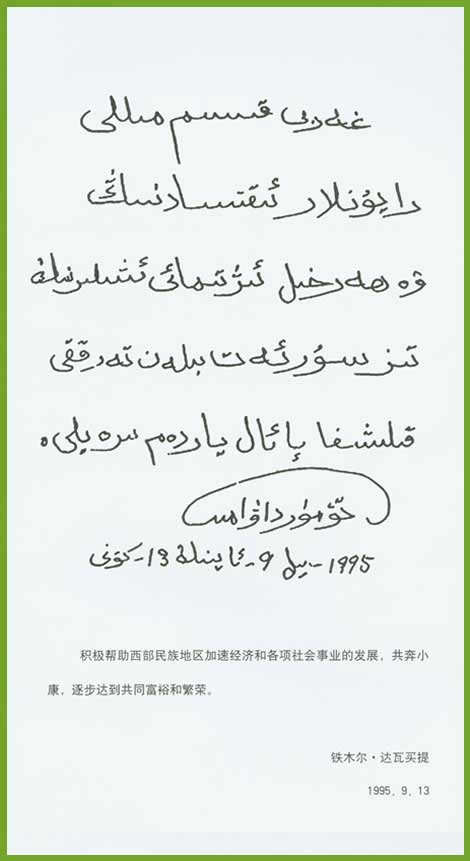 غەربى قىسىم مىللى
رايۇنلار ئىقتىسادىنىڭ
ۋە ھەرخىل ئىژتىمائى ئىشلىرىنىڭ
تىز سۇرئەت بىلەن تەرەققى
قىلىشىغا پائال ياردەم بىرەيلى.
تۆمۈر داۋامەت
1995-يىل 9-ئاينىڭ 13-كۈنى
积极帮助西部民族地区加速经济和各项社会事业的发展，共奔小
康，逐步达到共同富裕和繁荣。
铁木尔·达瓦买提
1995，9，13